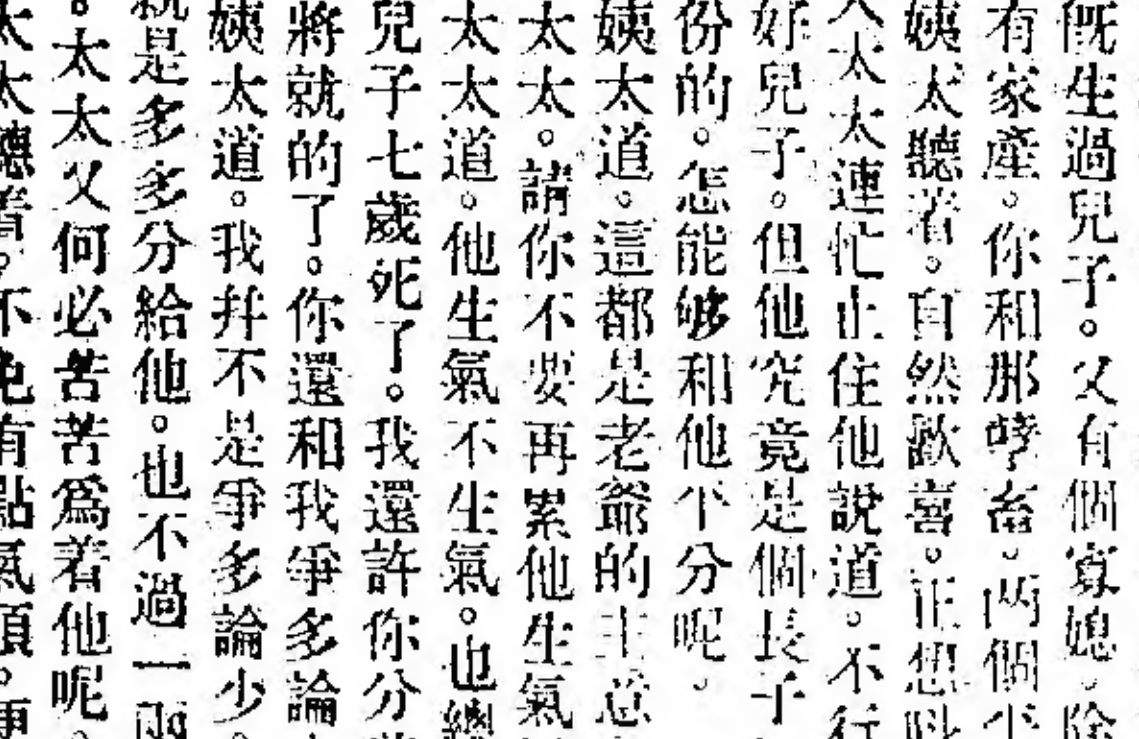 旣生過兒子。又有個寡媳。除
有家產。你和那孽畜。兩個平
姨太聽着。自然歡喜。正想
太太連忙止住他說道。不行
好兒子。但他究竟是個長子
份的。怎能够和他平分呢。
姨太道。這都是老爺的主意
太太。請你不要再累他生氣
太太道。他生氣不生氣。也總
兒子七歲死了。我還許你分
將就的了。你還和我爭多論
姨太道。我幷不是爭多論少。
就是多多分給他。也不過一兩
。太太又何必苦苦爲着他呢。
太太聽着。不免有點氣頭。便